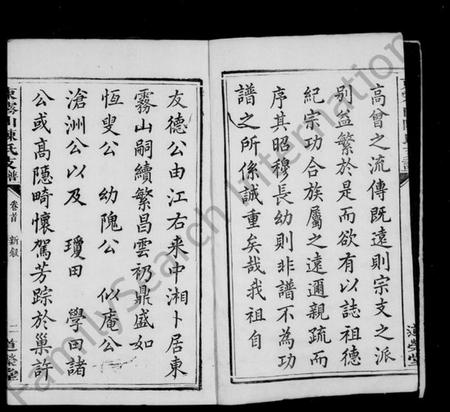 高曾之流傳既遠則宗支之派
別益繁於是而欲有以誌祖德
紀宗功合族屬之遠邇親疏而
序其昭穆長幼則非譜不為功
譜之所係誠重矣哉我祖自
友德公由江右來中湘卜居東
霧山嗣續繁昌雲礽鼎盛如
恆叟公 幼隗公 似庵公
滄洲公以及 瓊田 學田諸
公或高隱畸懷駕芳踪於巢許
東霧山陳氏支譜 卷首 新敘 二 道榮堂
FamilySearch International